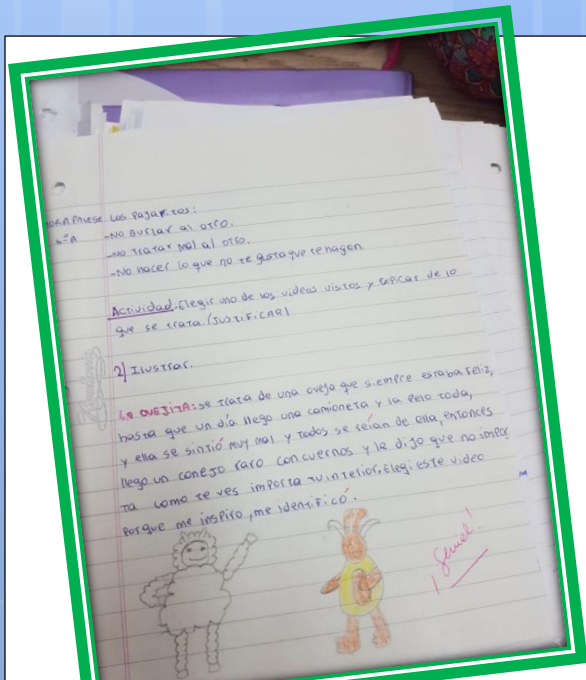 Los Pajaritos:
6°A -NO BURLAR al OTRO.
-NO TRATAR Mal al OTRO.
-NO hacer lo que no te gusta que te hagan
Actividad: Elegir uno de los videos vistos y explicar de lo
que se trata. (JUSTIFICAR)
2) Ilustrar.
LA OVEJITA: se trata de una oveja que siempre estaba feliz,
hasta que un día llego una camioneta y la pelo toda,
y ella se sintió muy mal y todos se reían de ella, entonces
llego un conejo raro con cuernos y le dijo que no impor
ta como te ves importa tu interior. Elegi este video
porque me inspiro, me identificó.
¡Genial!